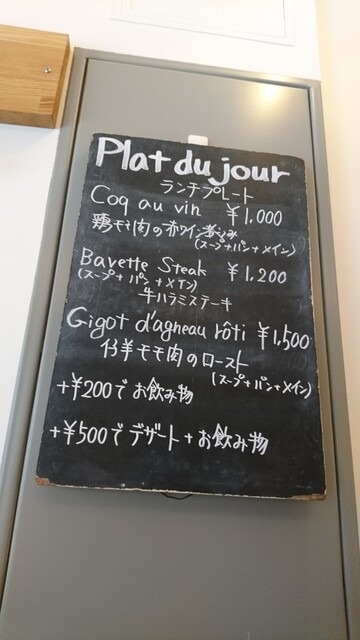 Plat du jour
ランチプレート
Coq au vin ¥1,000
鶏モモ肉の赤ワイン煮込み
(スープ+パン+メイン)
Bavette Steak ¥1.200
(スープ+パン+メイン)
牛ハラミステーキ
Gigot d'agneau rôti ¥1,500
仔羊モモ肉のロースト
(スープ+パン+メイン)
+¥200でお飲み物
+¥500でデザート+お飲み物